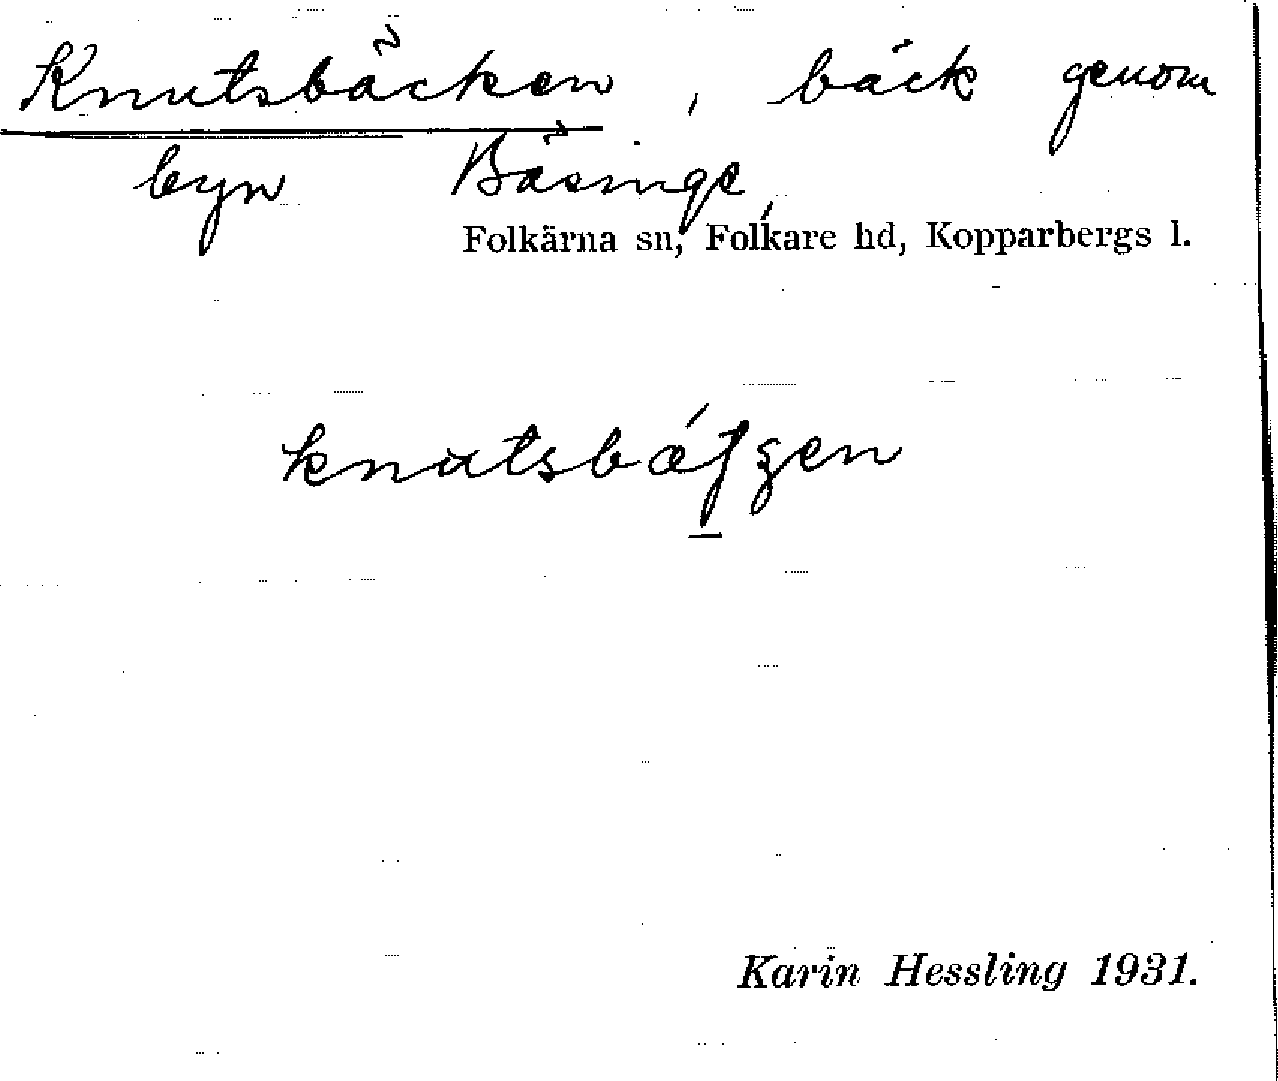 Knutsbäcken, bäck genom
byn Bäsinge,
Folkärna sn, Folkare hd, Kopparbergs l.
Karin Hessling 1931.